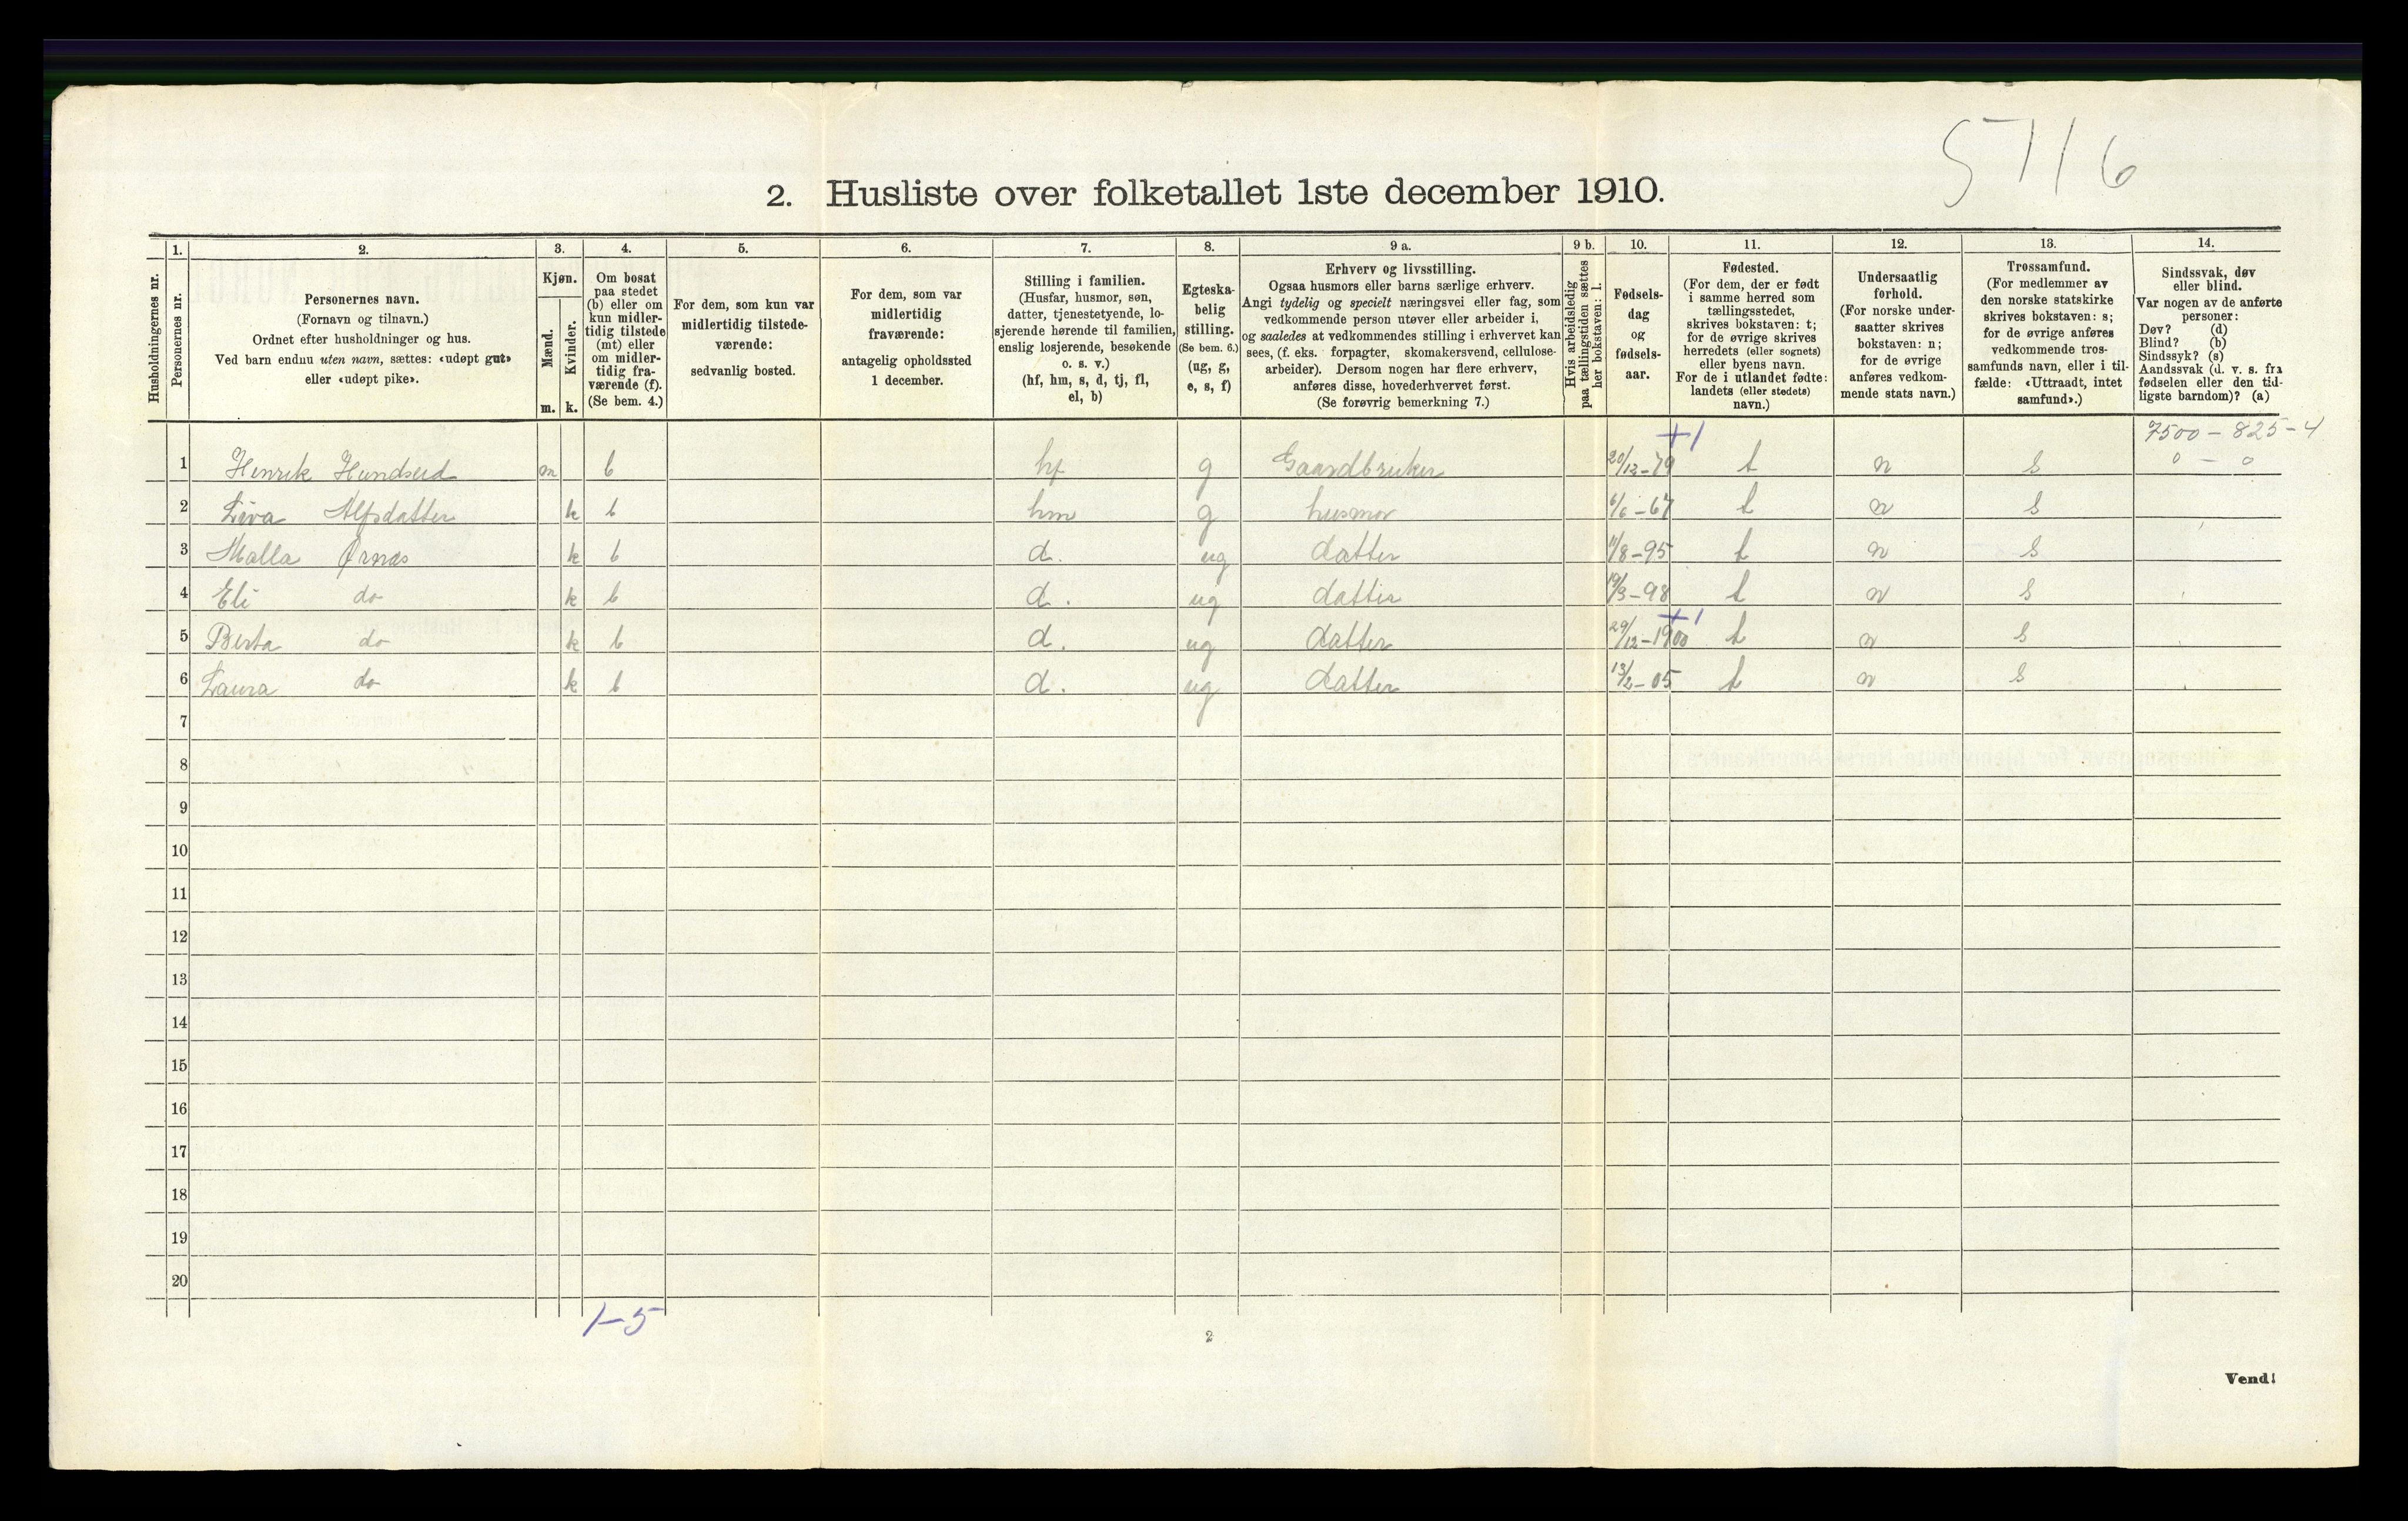 57/6
2. Husliste over folketallet 1ste december 1910.
Husholdningernes nr.
1. Personernes nr.
2. Personernes navn. (Fornavn og tilnavn.) Ordnet efter husholdninger og hus. Ved barn endnu uten navn, sættes: «udøpt gut» eller «udøpt pike».
3. Kjøn. Mænd. m. Kvinder. k.
4. Om bosat paa stedet (b) eller om kun midlertidig tilstede (mt) eller om midlertidig fraværende (f). (Se bem. 4.)
5. For dem, som kun var midlertidig tilstedeværende: sedvanlig bosted.
6. For dem, som var midlertidig fraværende: antagelig opholdssted 1 december.
7. Stilling i familien. (Husfar, husmor, søn, datter, tjenestetyende, losjerende hørende til familien, enslig losjerende, besøkende o. s. v.) (hf, hm, s, d, tj, fl, el, b)
8. Egteskabelig stilling. (Se bem. 6.) (ug, g, e, s, f)
9 a. Erhverv og livsstilling. Ogsaa husmors eller barns særlige erhverv. Angi tydelig og specielt næringsvei eller fag, som vedkommende person utøver eller arbeider i, og saaledes at vedkommendes stilling i erhvervet kan sees, (f. eks. forpagter, skomakersvend, cellulosearbeider). Dersom nogen har flere erhverv, anføres disse, hovederhvervet først. (Se forøvrig bemerkning 7.)
9 b. Hvis arbeidsledig paa tællingstiden sættes her bokstaven: l.
10. Fødselsdag og fødselsaar.
11. Fødested. (For dem, der er født i samme herred som tællingsstedet, skrives bokstaven: t; for de øvrige skrives herredets (eller sognets) eller byens navn. For de i utlandet fødte: landets (eller stedets) navn.)
12. Undersaatlig forhold. (For norske undersaatter skrives bokstaven: n; for de øvrige anføres vedkommende stats navn.)
13. Trossamfund. (For medlemmer av den norske statskirke skrives bokstaven: s; for de øvrige anføres vedkommende trossamfunds navn, eller i tilfælde: «Uttraadt, intet samfund».)
14. Sindssvak, døv eller blind. Var nogen av de anførte personer: Døv? (d) Blind? (b) Sindssyk? (s) Aandssvak (d. v. s. fra fødselen eller den tidligste barndom)? (a)
+1 7500 – 825 – 4
0 – 0
1 Henrik Hundseid m b hf g Gaardbruker 20/12-79 t n S
2 Liva Alfsdatter k b hm g husmor 6/6-67 t n S
3 Malla Ørnæs k b d. ug datter 11/8-95 t n S
4 Eli do k b d. ug datter 19/3-98 t n S
+1
5 Berta do k b d. ug datter 29/12-1900 t n S
6 Laura do k b d. ug datter 13/2-05 t n S
7
8
9
10
11
12
13
14
15
16
17
18
19
20
1-5
2
Vend!